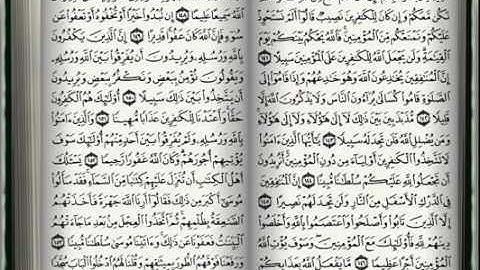 نَكُن مَّعَكُمْ وَإِن كَانَ لِلْكَٰفِرِينَ نَصِيبٌ قَالُوٓا۟ أَلَمْ نَسْتَحْوِذْ
عَلَيْكُمْ وَنَمْنَعْكُم مِّنَ ٱلْمُؤْمِنِينَ فَٱللَّهُ يَحْكُمُ بَيْنَكُمْ يَوْمَ
ٱلْقِيَٰمَةِ وَلَن يَجْعَلَ ٱللَّهُ لِلْكَٰفِرِينَ عَلَى ٱلْمُؤْمِنِينَ سَبِيلًا ١٤١
إِنَّ ٱلْمُنَٰفِقِينَ يُخَٰدِعُونَ ٱللَّهَ وَهُوَ خَٰدِعُهُمْ وَإِذَا قَامُوٓا۟ إِلَى
ٱلصَّلَوٰةِ قَامُوا۟ كُسَالَىٰ يُرَآءُونَ ٱلنَّاسَ وَلَا يَذْكُرُونَ ٱللَّهَ إِلَّا
قَلِيلًا ١٤٢ مُّذَبْذَبِينَ بَيْنَ ذَٰلِكَ لَآ إِلَىٰ هَٰٓؤُلَآءِ وَلَآ إِلَىٰ هَٰٓؤُلَآءِ
وَمَن يُضْلِلِ ٱللَّهُ فَلَن تَجِدَ لَهُۥ سَبِيلًا ١٤٣ يَٰٓأَيُّهَا ٱلَّذِينَ ءَامَنُوا۟
لَا تَتَّخِذُوا۟ ٱلْكَٰفِرِينَ أَوْلِيَآءَ مِن دُونِ ٱلْمُؤْمِنِينَ أَتُرِيدُونَ
أَن تَجْعَلُوا۟ لِلَّهِ عَلَيْكُمْ سُلْطَٰنًا مُّبِينًا ١٤٤ إِنَّ ٱلْمُنَٰفِقِينَ
فِى ٱلدَّرْكِ ٱلْأَسْفَلِ مِنَ ٱلنَّارِ وَلَن تَجِدَ لَهُمْ نَصِيرًا ١٤٥
إِلَّا ٱلَّذِينَ تَابُوا۟ وَأَصْلَحُوا۟ وَٱعْتَصَمُوا۟ بِٱللَّهِ وَأَخْلَصُوا۟
دِينَهُمْ لِلَّهِ فَأُو۟لَٰٓئِكَ مَعَ ٱلْمُؤْمِنِينَ وَسَوْفَ يُؤْتِ ٱللَّهُ
ٱلْمُؤْمِنِينَ أَجْرًا عَظِيمًا ١٤٦ مَّا يَفْعَلُ ٱللَّهُ بِعَذَابِكُمْ
ٱللَّهُ سَمِيعًا عَلِيمًا ١٤٨ إِن تُبْدُوا۟ خَيْرًا أَوْ تُخْفُوهُ أَوْ تَعْفُوا۟ عَن
سُوٓءٍ فَإِنَّ ٱللَّهَ كَانَ عَفُوًّا قَدِيرًا ١٤٩ إِنَّ ٱلَّذِينَ يَكْفُرُونَ
بِٱللَّهِ وَرُسُلِهِۦ وَيُرِيدُونَ أَن يُفَرِّقُوا۟ بَيْنَ ٱللَّهِ وَرُسُلِهِۦ
وَيَقُولُونَ نُؤْمِنُ بِبَعْضٍ وَنَكْفُرُ بِبَعْضٍ وَيُرِيدُونَ
أَن يَتَّخِذُوا۟ بَيْنَ ذَٰلِكَ سَبِيلًا ١٥٠ أُو۟لَٰٓئِكَ هُمُ ٱلْكَٰفِرُونَ
حَقًّا وَأَعْتَدْنَا لِلْكَٰفِرِينَ عَذَابًا مُّهِينًا ١٥١ وَٱلَّذِينَ ءَامَنُوا۟
بِٱللَّهِ وَرُسُلِهِۦ وَلَمْ يُفَرِّقُوا۟ بَيْنَ أَحَدٍ مِّنْهُمْ أُو۟لَٰٓئِكَ سَوْفَ
يُؤْتِيهِمْ أُجُورَهُمْ وَكَانَ ٱللَّهُ غَفُورًا رَّحِيمًا ١٥٢ يَسْـَٔلُكَ
أَهْلُ ٱلْكِتَٰبِ أَن تُنَزِّلَ عَلَيْهِمْ كِتَٰبًا مِّنَ ٱلسَّمَآءِ فَقَدْ سَأَلُوا۟
مُوسَىٰٓ أَكْبَرَ مِن ذَٰلِكَ فَقَالُوٓا۟ أَرِنَا ٱللَّهَ جَهْرَةً فَأَخَذَتْهُمُ
ٱلصَّٰعِقَةُ بِظُلْمِهِمْ ثُمَّ ٱتَّخَذُوا۟ ٱلْعِجْلَ مِنۢ بَعْدِ مَا جَآءَتْهُمُ
ٱلْبَيِّنَٰتُ فَعَفَوْنَا عَن ذَٰلِكَ وَءَاتَيْنَا مُوسَىٰ سُلْطَٰنًا مُّبِينًا ١٥٣
وَرَفَعْنَا فَوْقَهُمُ ٱلطُّورَ بِمِيثَٰقِهِمْ وَقُلْنَا لَهُمُ ٱدْخُلُوا۟ ٱلْبَابَ سُجَّدًا